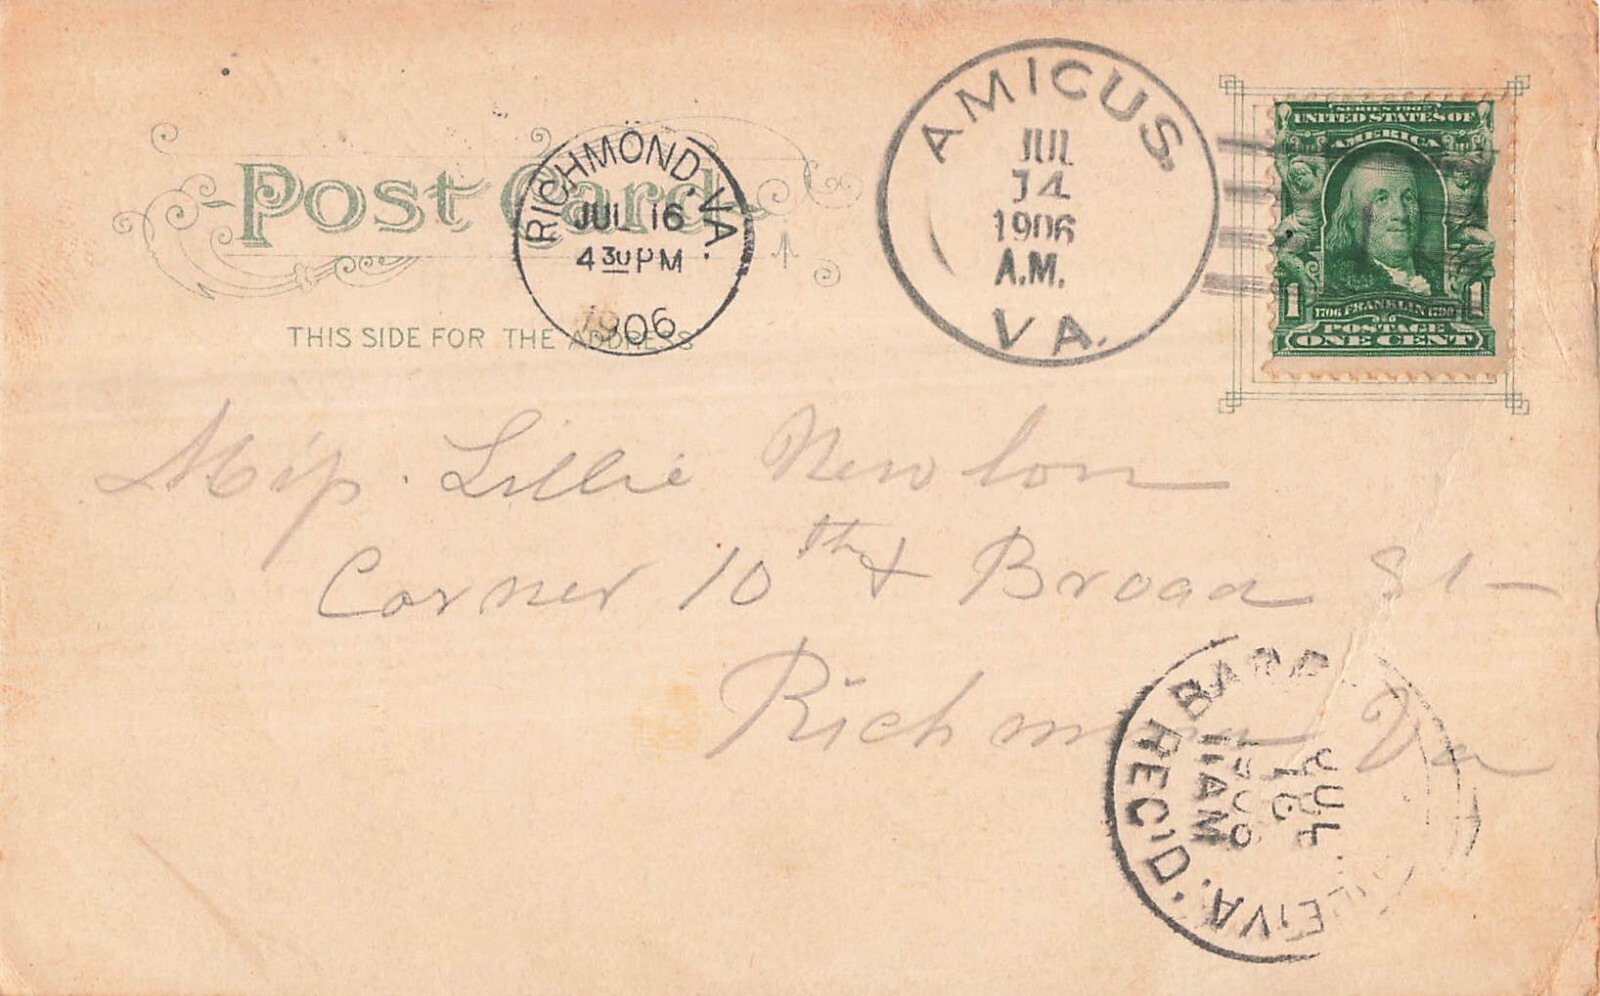 Post Card
THIS SIDE FOR THE ADDRESS
RICHMOND, VA.
JUL 16
4 30 PM
1906
AMICUS.
JUL
14
1906
A.M.
VA.
SERIES 1902
UNITED STATES OF
AMERICA
1 1706 FRANKLIN 1790 1
POSTAGE
ONE CENT
Miss. Lillie Newlon
Corner 10th & Broad St
Richmond Va
REC'D.
JUL
16
1906
11AM
VA.